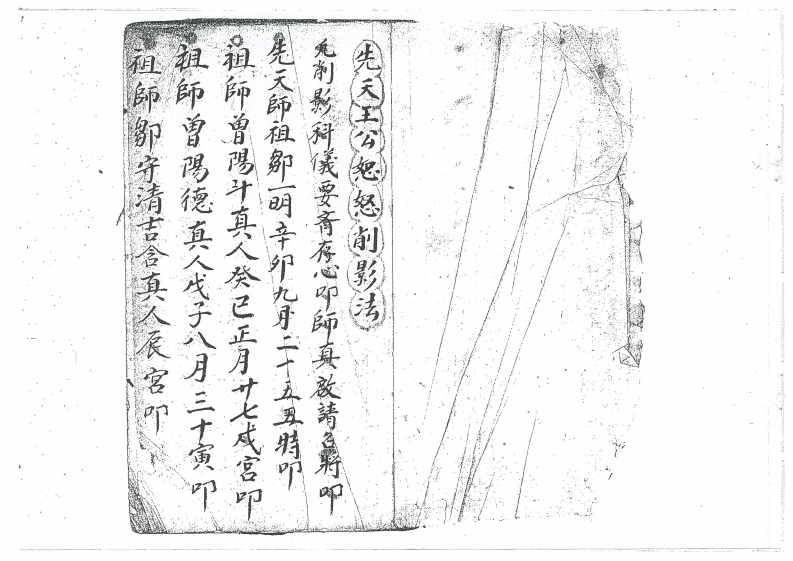 先天王公恕怒削影法
凡削影科儀要齋存心叩師真啟請召將叩
先天師祖鄒一明辛卯九月二十五丑時叩
祖師曾陽斗真人癸巳正月廿七戌宮叩
祖師曾陽德真人戊子八月三十寅叩
祖師鄒守清吉含真人辰宮叩